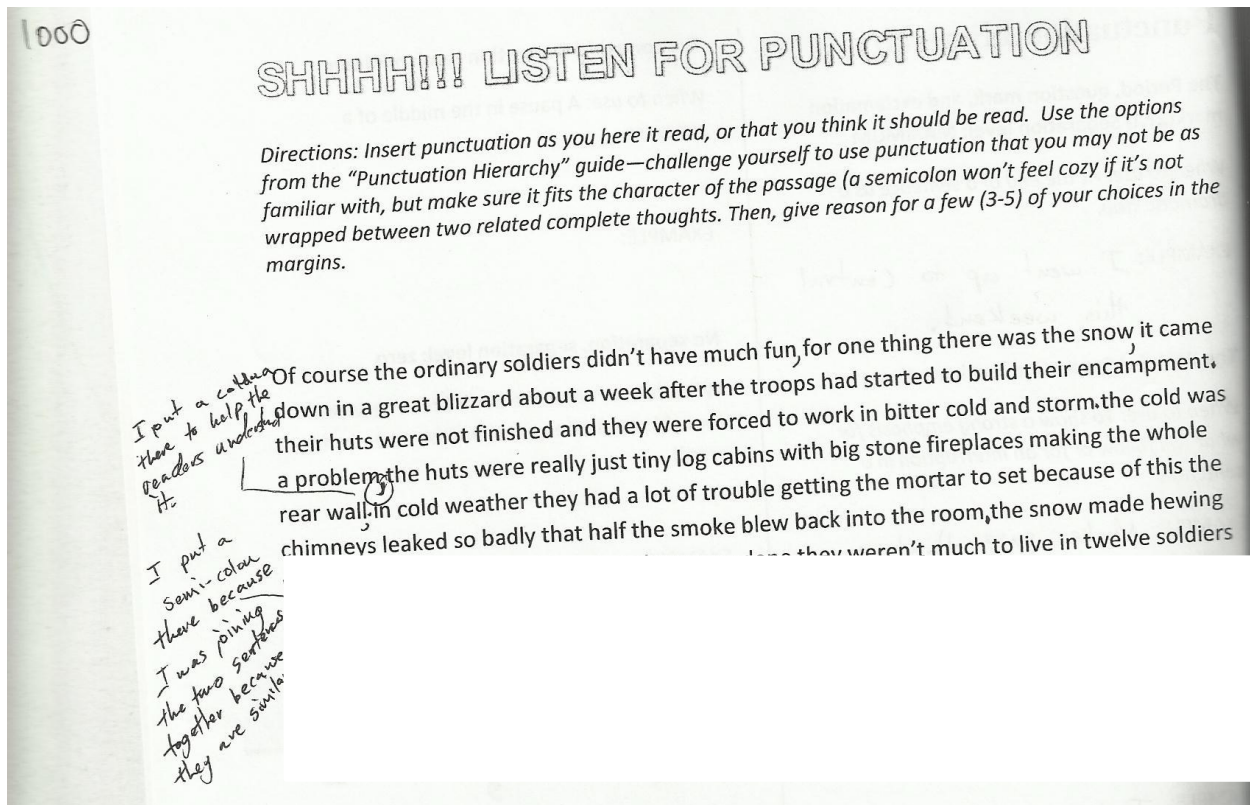 1000
SHHHH!!! LISTEN FOR PUNCTUATION
Directions: Insert punctuation as you here it read, or that you think it should be read. Use the options
from the “Punctuation Hierarchy” guide—challenge yourself to use punctuation that you may not be as
familiar with, but make sure it fits the character of the passage (a semicolon won’t feel cozy if it’s not
wrapped between two related complete thoughts. Then, give reason for a few (3-5) of your choices in the
margins.
Of course the ordinary soldiers didn’t have much fun, for one thing there was the snow, it came
down in a great blizzard about a week after the troops had started to build their encampment.
their huts were not finished and they were forced to work in bitter cold and storm. the cold was
a problem, the huts were really just tiny log cabins with big stone fireplaces making the whole
rear wall; in cold weather they had a lot of trouble getting the mortar to set because of this the
chimneys leaked so badly that half the smoke blew back into the room, the snow made hewing
they weren’t much to live in twelve soldiers
I put a
there to help the
readers understand
it.
I put a
semi-colon
there because
I was joining
the two sentences
together because
they are